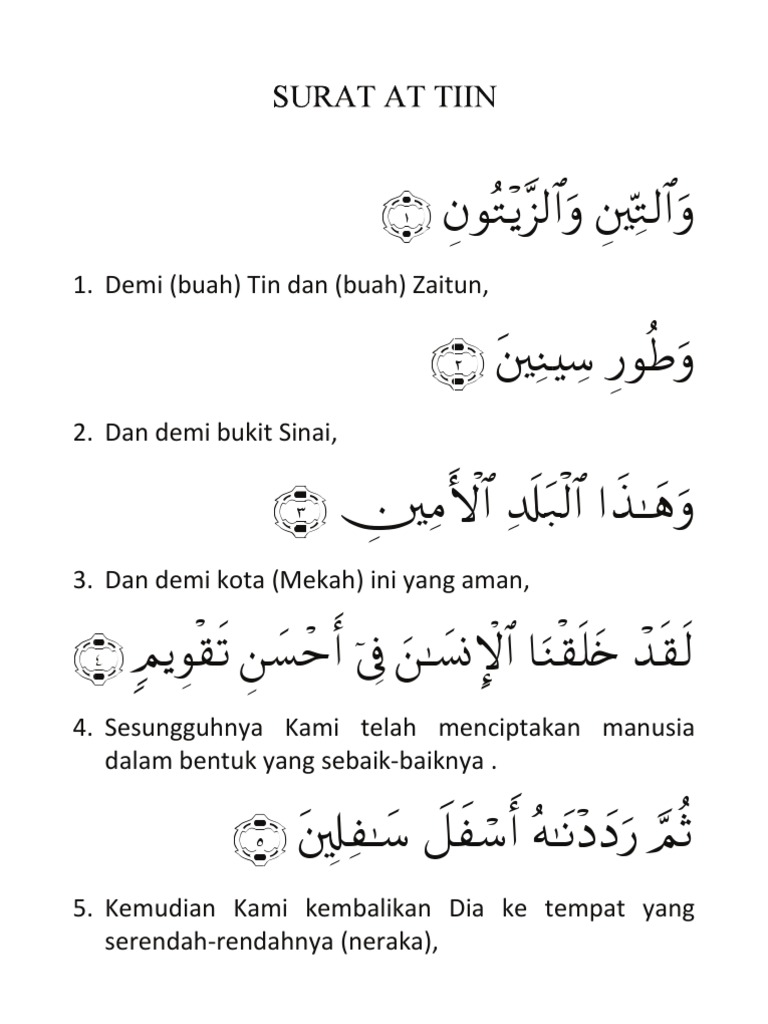 SURAT AT TIIN
وَٱلتِّينِ وَٱلزَّيۡتُونِ ١
1. Demi (buah) Tin dan (buah) Zaitun,
وَطُورِ سِينِينَ ٢
2. Dan demi bukit Sinai,
وَهَـٰذَا ٱلۡبَلَدِ ٱلۡأَمِينِ ٣
3. Dan demi kota (Mekah) ini yang aman,
لَقَدۡ خَلَقۡنَا ٱلۡإِنسَـٰنَ فِىٓ أَحۡسَنِ تَقۡوِيمٍ ٤
4. Sesungguhnya Kami telah menciptakan manusia
dalam bentuk yang sebaik-baiknya .
ثُمَّ رَدَدۡنَـٰهُ أَسۡفَلَ سَـٰفِلِينَ ٥
5. Kemudian Kami kembalikan Dia ke tempat yang
serendah-rendahnya (neraka),